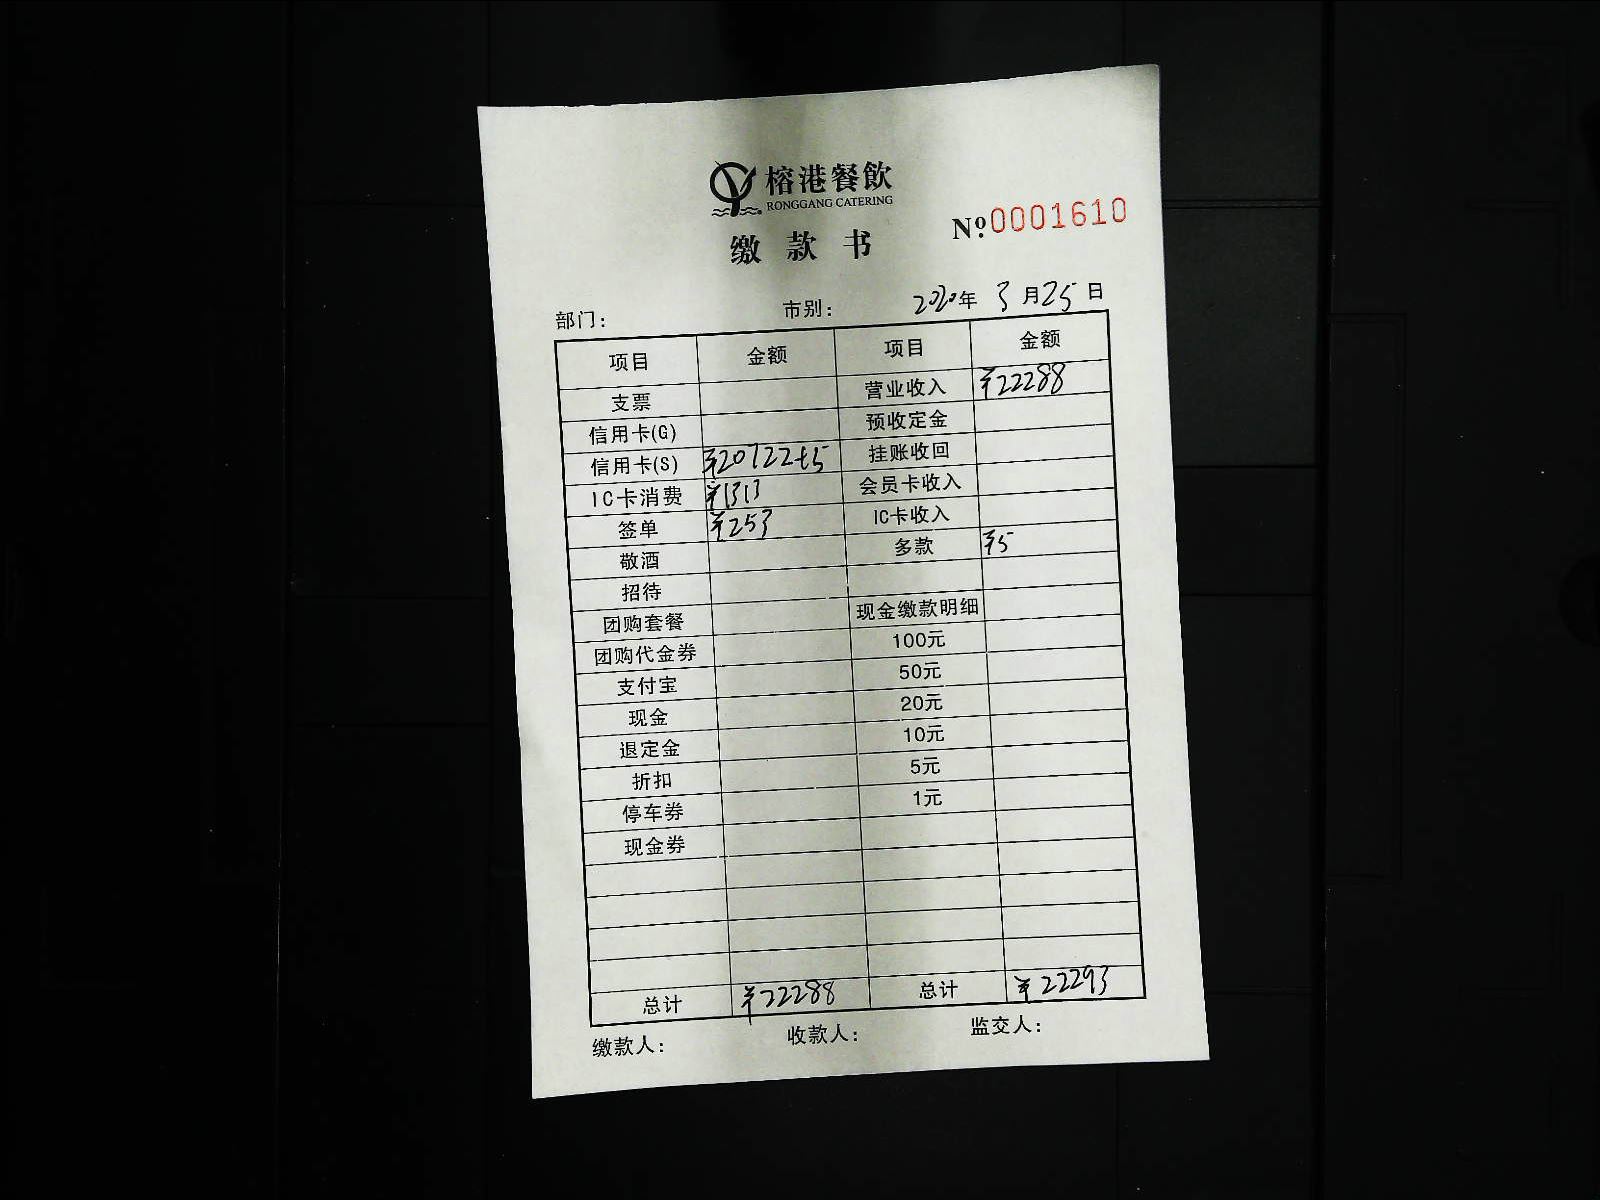 榕港餐飲
RONGGANG CATERING
缴款书
№:0001610
部门: 市别: 2020年 3月25日
项目 金额 项目 金额
支票 营业收入 ¥22288
信用卡(G) 预收定金
信用卡(S) ¥20722+5 挂账收回
IC卡消费 ¥1313 会员卡收入
签单 ¥253 IC卡收入
敬酒 多款 ¥5
招待
团购套餐 现金缴款明细
团购代金券 100元
支付宝 50元
现金 20元
退定金 10元
折扣 5元
停车券 1元
现金券
总计 ¥22288 总计 ¥22293
缴款人: 收款人: 监交人: